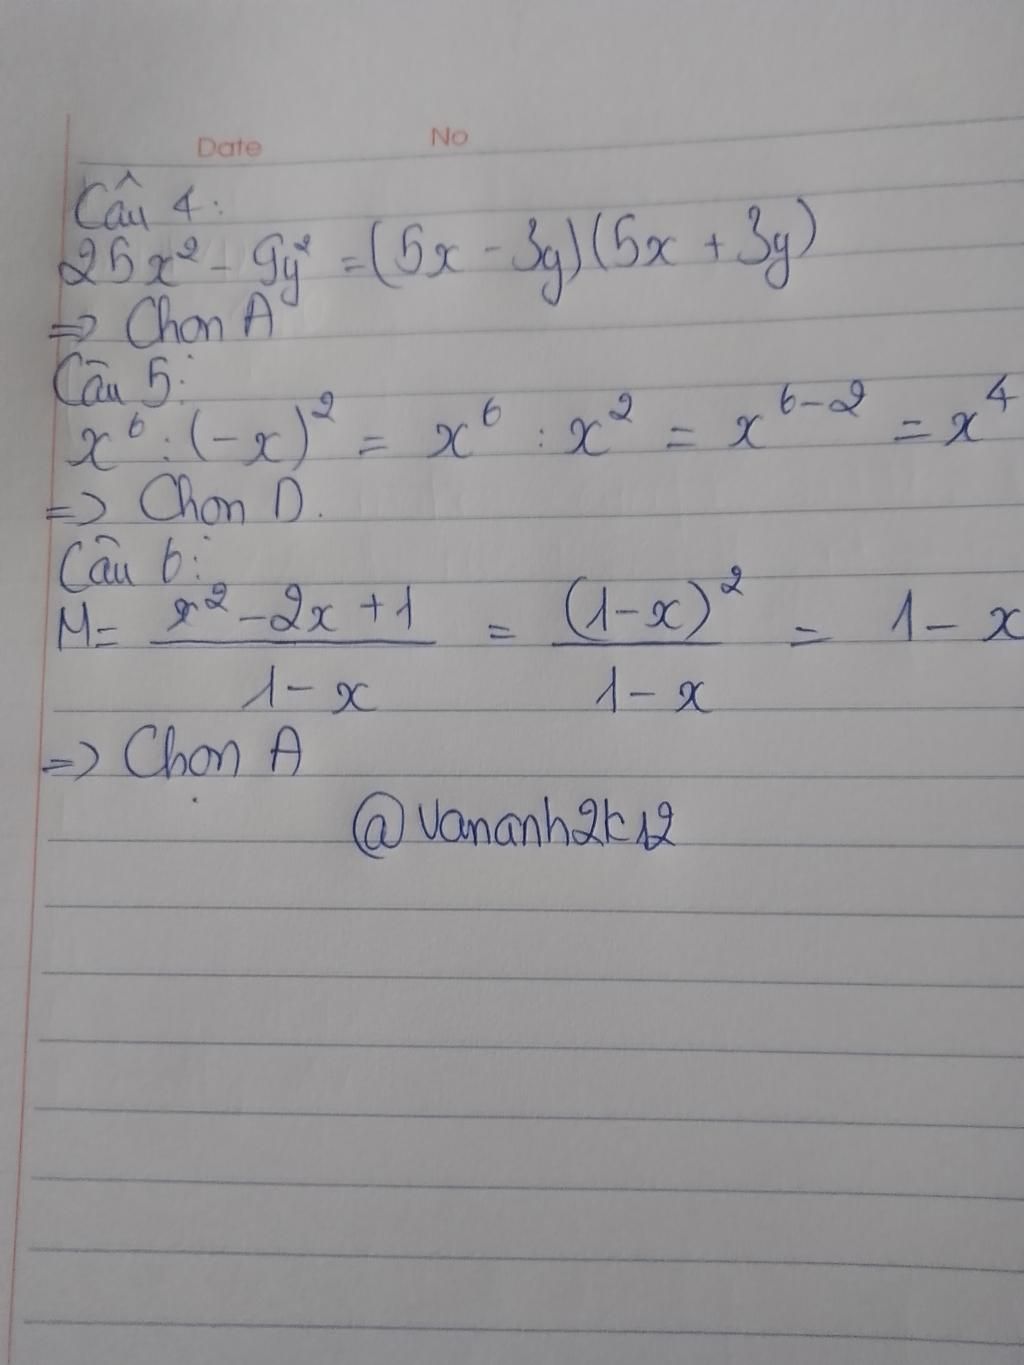 Date No
Câu 4:
25x² - 9y² = (5x - 3y)(5x + 3y)
=> Chọn A
Câu 5:
x⁶ : (-x)² = x⁶ : x² = x⁶⁻² = x⁴
=> Chọn D.
Câu 6:
M = (x² - 2x + 1)/(1 - x) = (1 - x)²/(1 - x) = 1 - x
=> Chọn A
@vananh2k12